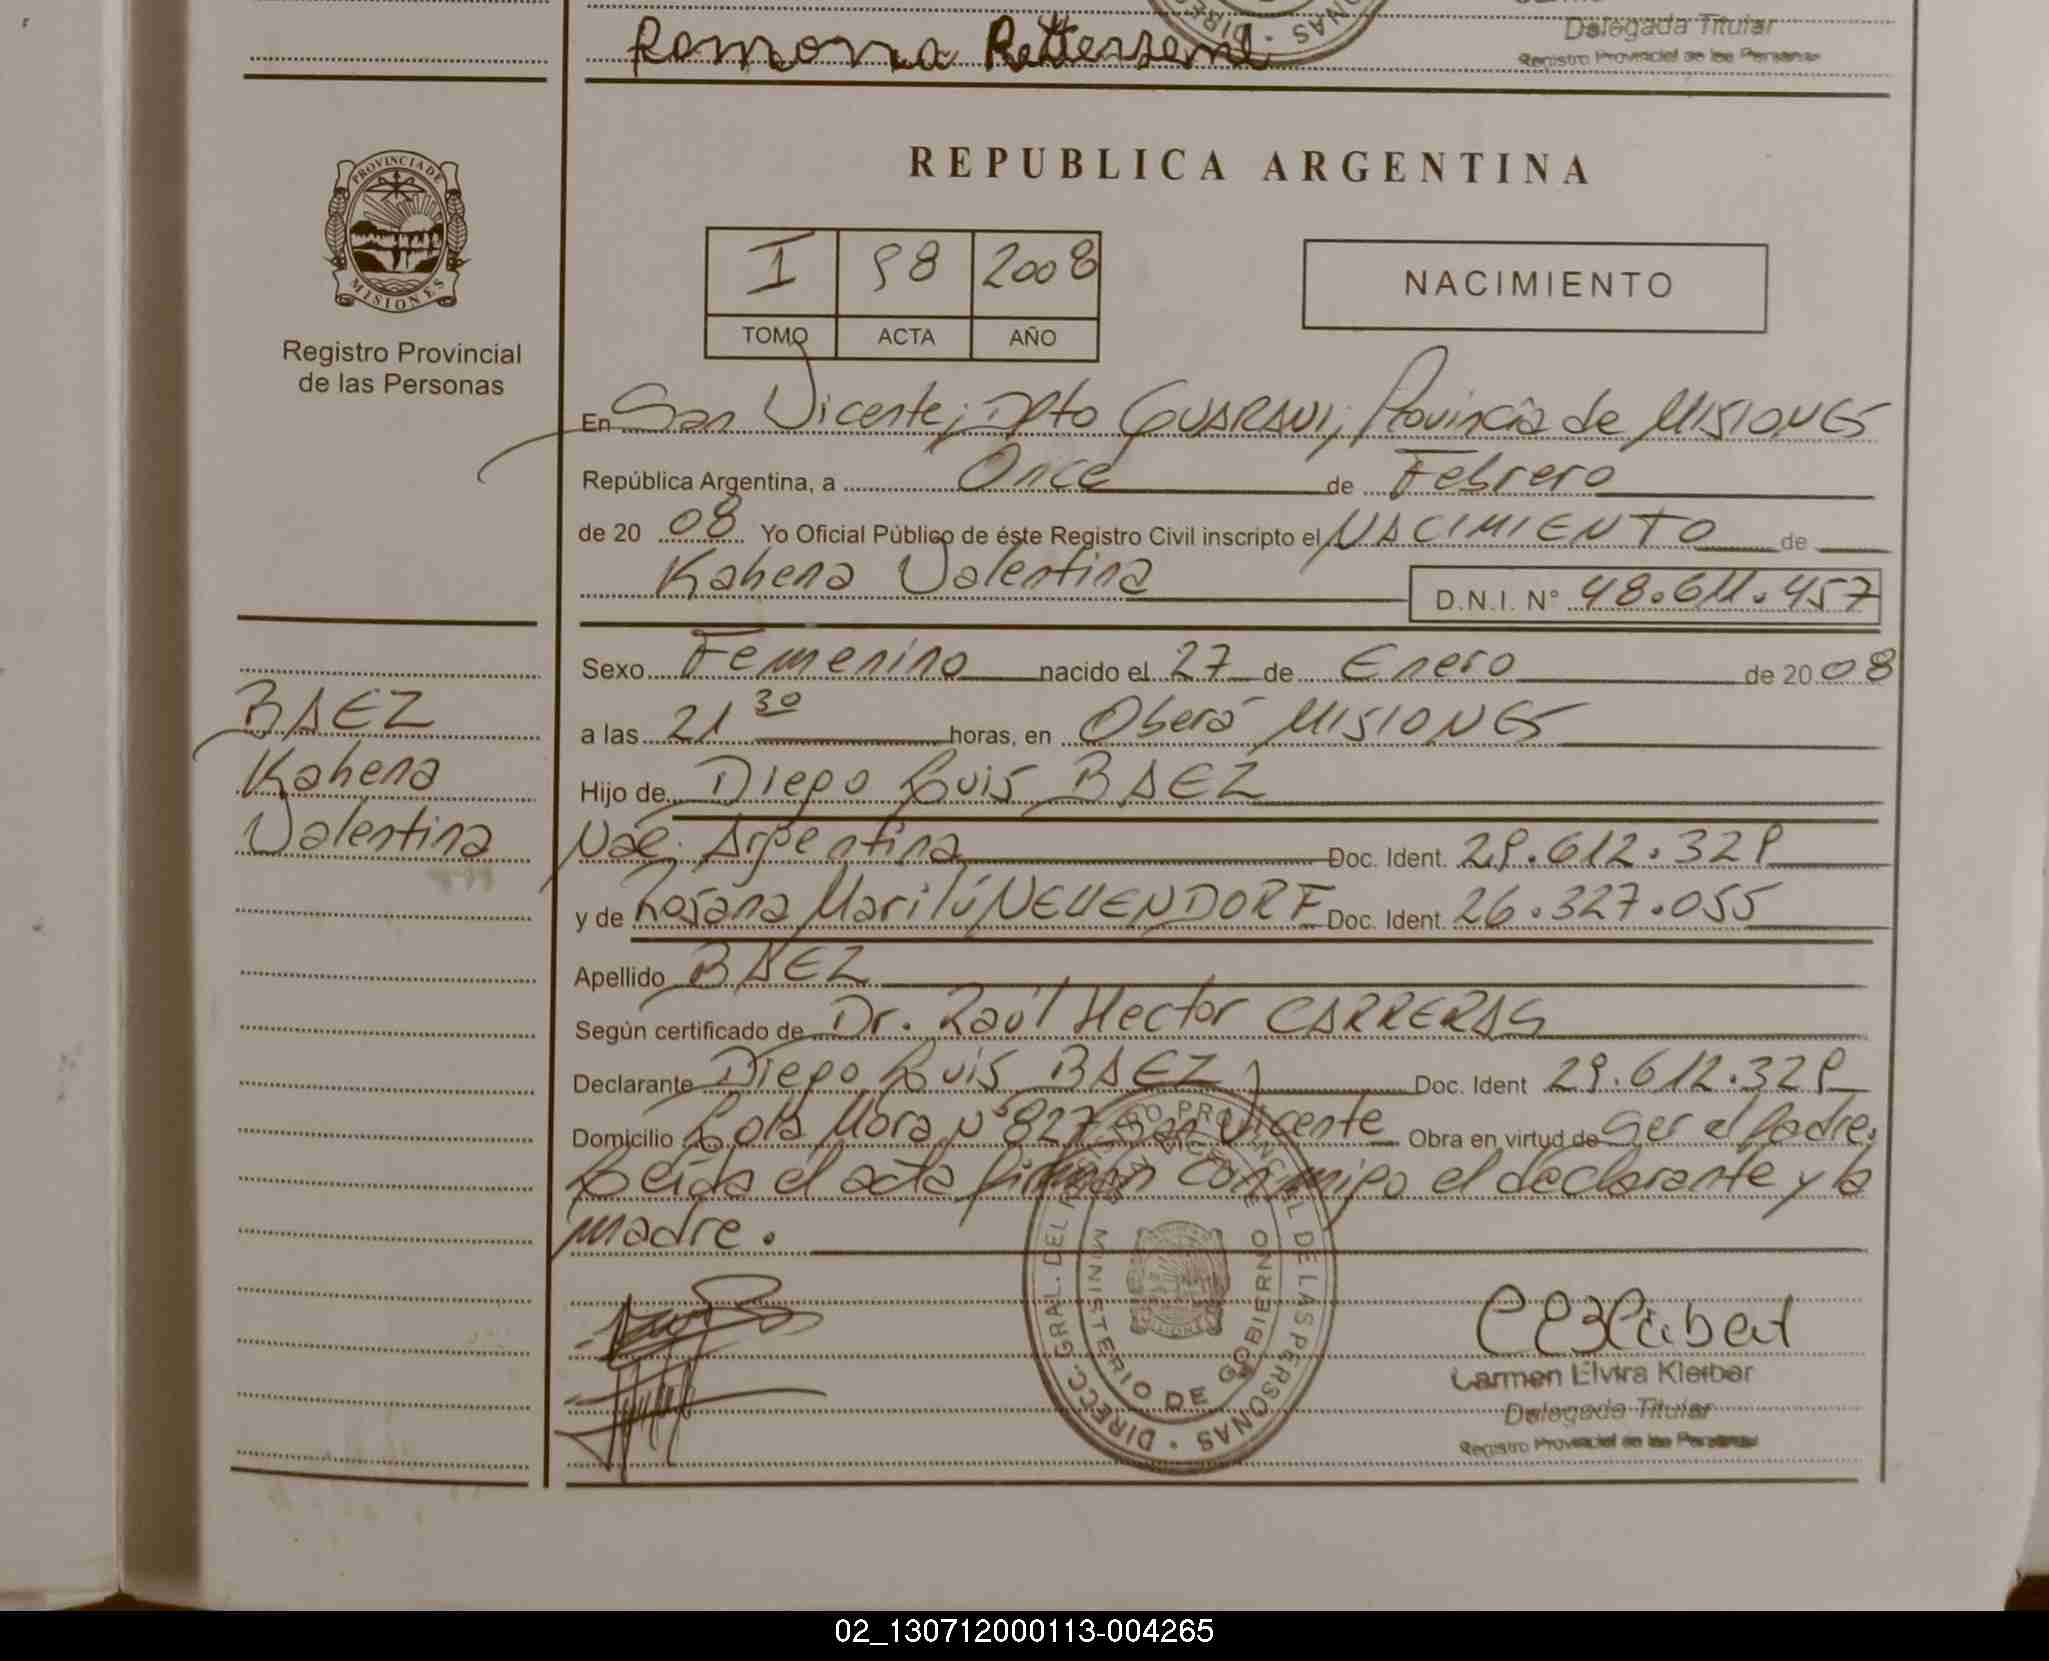 Ramona Rettersent
Delegada Titular
Registro Provincial de las Personas
PROVINCIA DE
MISIONES
Registro Provincial
de las Personas
REPUBLICA ARGENTINA
I 98 2008
TOMO ACTA AÑO
NACIMIENTO
En San Vicente, Dpto GUARANI, Provincia de MISIONES
República Argentina, a Once de Febrero
de 20 08 Yo Oficial Público de éste Registro Civil inscripto el NACIMIENTO de
Kahena Valentina D.N.I. N° 48.611.457
Sexo Femenino nacido el 27 de Enero de 20 08
a las 21 30 horas, en Oberá MISIONES
Hijo de Diego Luis BAEZ
Nac. Argentina Doc. Ident. 29.612.329
y de Rosana Marilú NEUENDORF Doc. Ident. 26.327.055
Apellido BAEZ
Según certificado de Dr. Raúl Hector CARRERAS
Declarante Diego Luis BAEZ Doc. Ident 29.612.329
Domicilio Lola Mora N° 827 San Vicente Obra en virtud de Ser el padre.
Leida el acta firman conmigo el declarante y la
madre.
BAEZ
Kahena
Valentina
DIRECC. GRAL. DEL REGISTRO PROVINCIAL DE LAS PERSONAS
MINISTERIO DE GOBIERNO
Carmen Elvira Kleiber
Delegada Titular
Registro Provincial de las Personas
02_130712000113-004265